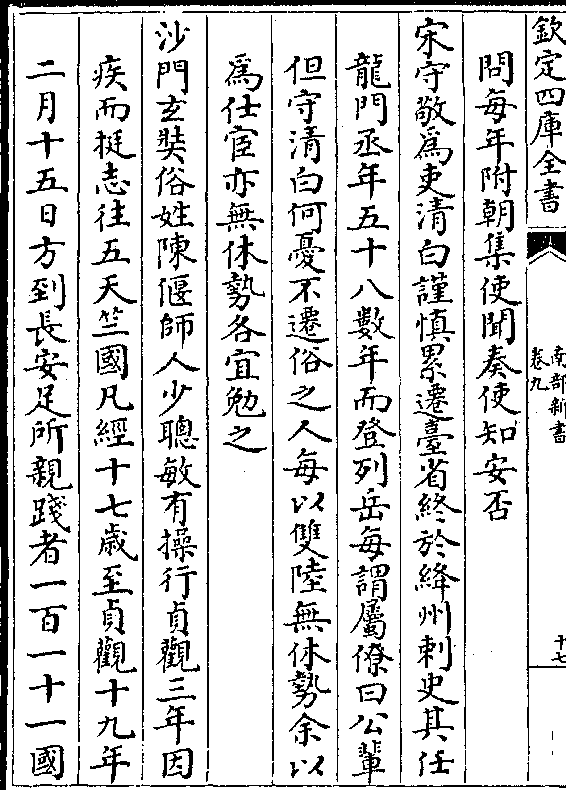 欽定四庫全書
南部新書
卷九
十七
問每年附朝集使聞奏使知安否
宋守敬為吏清白謹慎累遷臺省終於絳州刺史其任
龍門丞年五十八數年而登列岳每謂屬僚曰公輩
但守清白何憂不遷俗之人每以雙陸無休勢余以
為仕宦亦無休勢各宜勉之
沙門玄奘俗姓陳偃師人少聰敏有操行貞觀三年因
疾而挺志往五天竺國凡經十七歲至貞觀十九年
二月十五日方到長安足所親踐者一百一十一國